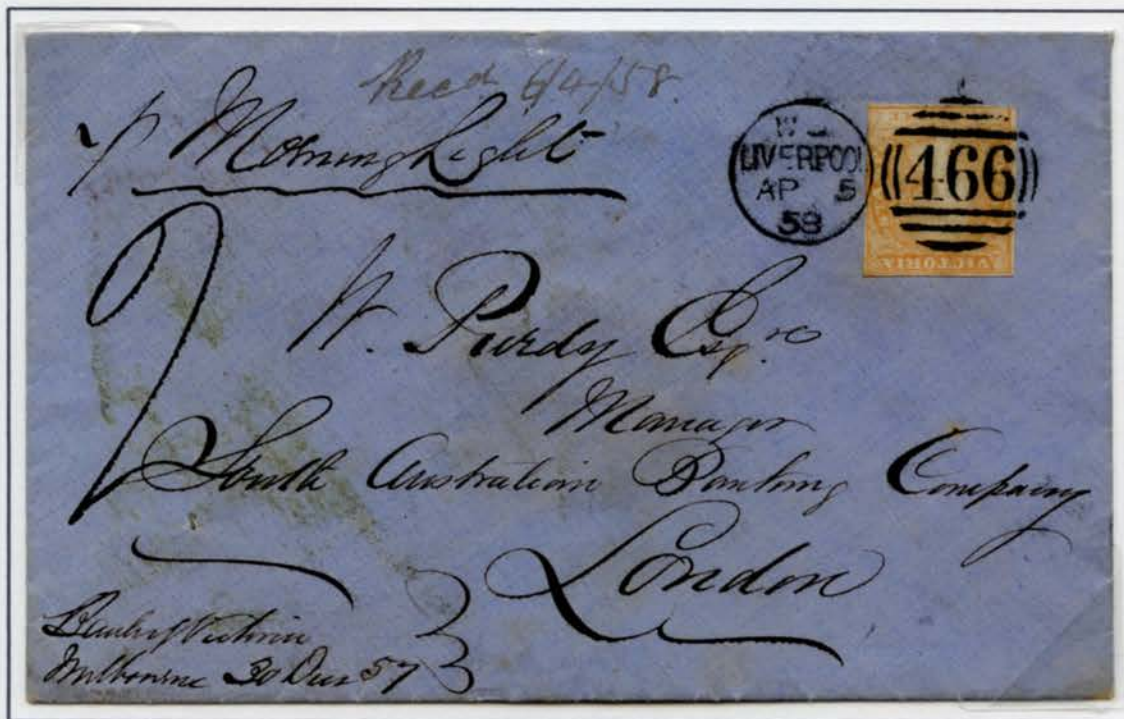 Recd 6/4/58.
p Morning Light
W
LIVERPOOL
AP 5
58
466
VICTORIA
W. Purdy Esqre
Manager
South Australian Banking Company
London
Bank of Victoria
Melbourne 30 Dec 57